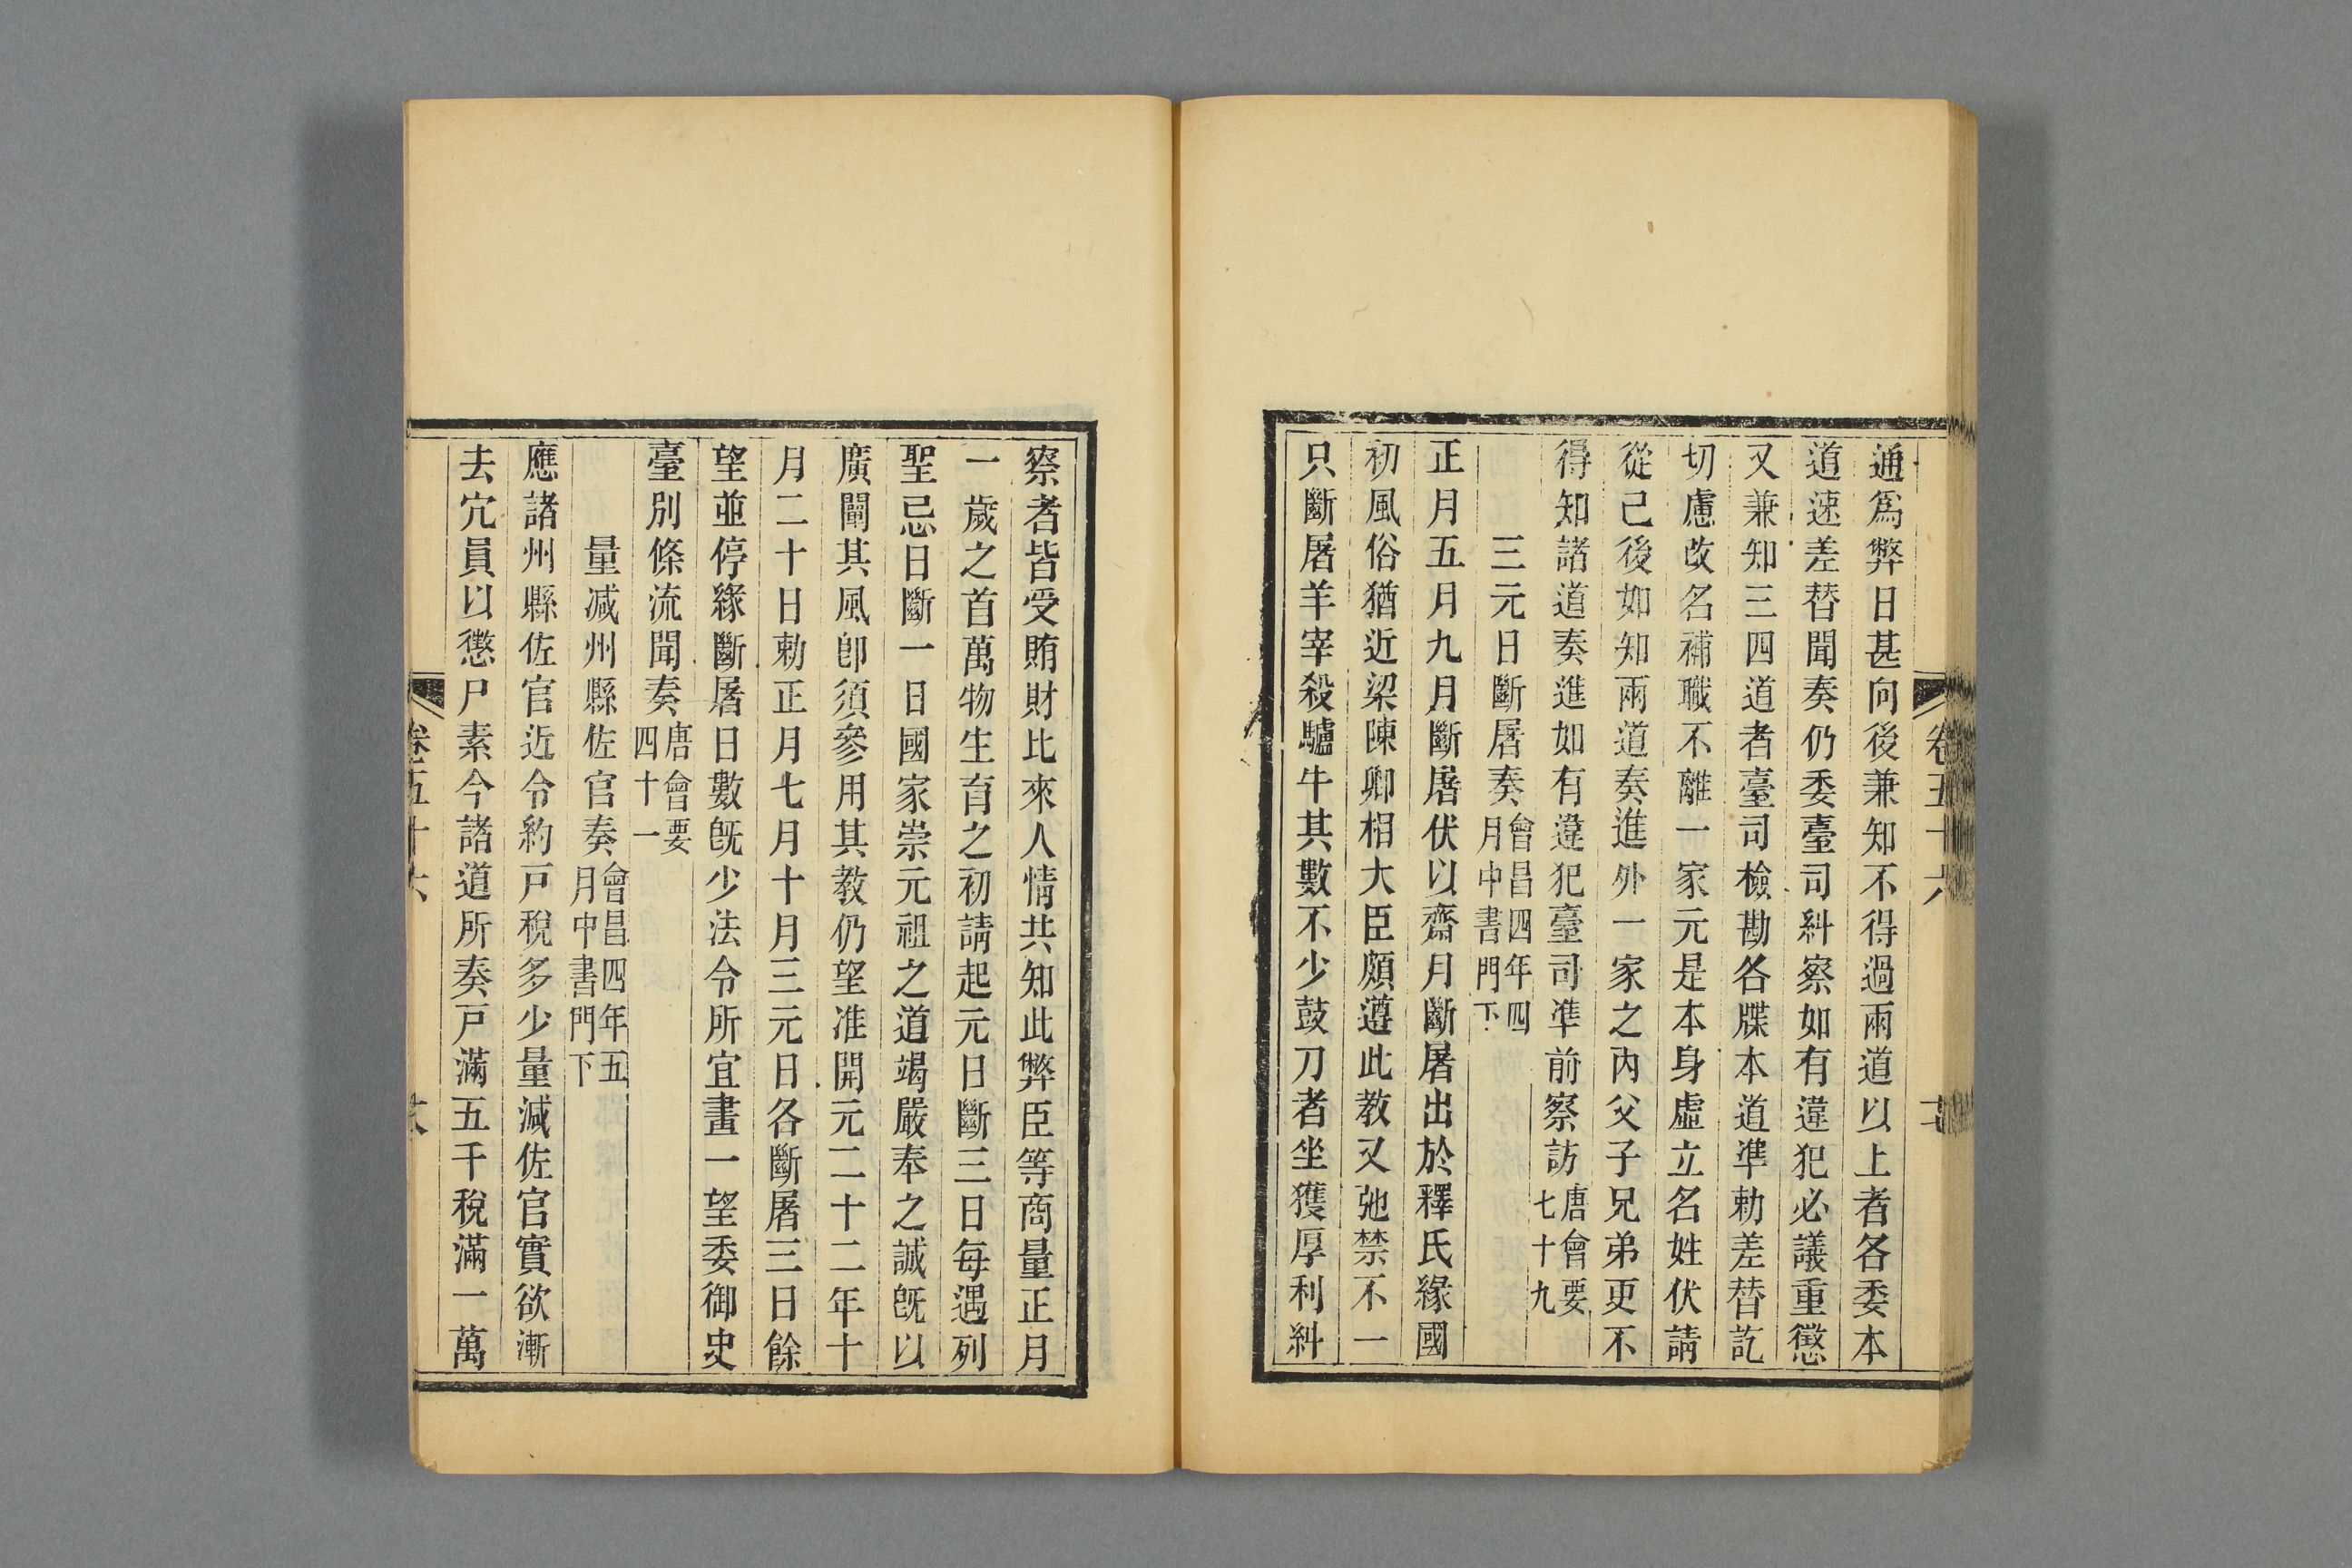 通爲弊日甚向後兼知不得過兩道以上者各委本
道速差替聞奏仍委臺司糾察如有違犯必議重懲
又兼知三四道者臺司檢勘各牒本道準勅差替訖
切慮改名補職不離一家元是本身虛立名姓伏請
從已後如知兩道奏進外一家之內父子兄弟更不
得知諸道奏進如有違犯臺司準前察訪唐會要
七十九
三元日斷屠奏會昌四年四
月中書門下
正月五月九月斷屠伏以齋月斷屠出於釋氏緣國
初風俗猶近梁陳卿相大臣頗遵此教又弛禁不一
只斷屠羊宰殺驢牛其數不少鼓刀者坐獲厚利糾
卷五十六
察者皆受賄財比來人情共知此弊臣等商量正月
一歲之首萬物生育之初請起元日斷三日每遇列
聖忌日斷一日國家崇元祖之道竭嚴奉之誠旣以
廣闡其風卽須參用其教仍望准開元二十二年十
月二十日勅正月七月十月三元日各斷屠三日餘
望並停緣斷屠日數旣少法令所宜畫一望委御史
臺別條流聞奏唐會要
四十一
量減州縣佐官奏會昌四年五
月中書門下
應諸州縣佐官近令約戸稅多少量減佐官實欲漸
去宂員以懲尸素今諸道所奏戸滿五千稅滿一萬
卷五十六